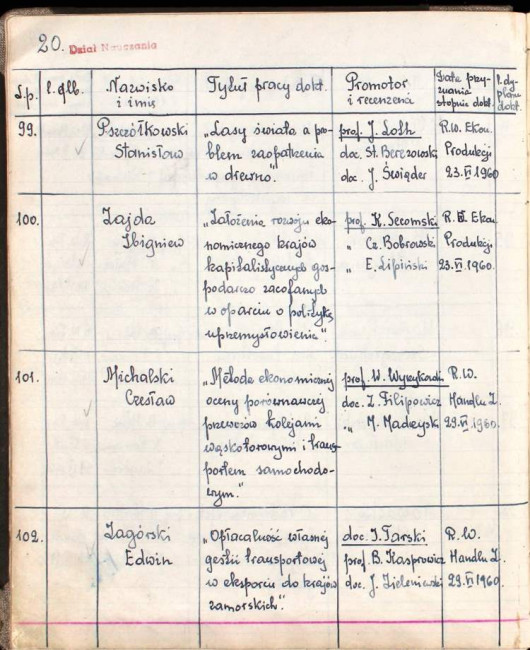 20. Dział Nauczania
L.p. l. alb. Nazwisko i imię Tytuł pracy dokt. Promotor i recenzenci Data przyznania stopnia dokt. l. dyplomu dokt.
99. Pszczółkowski
Stanisław
„Lasy świata a pro-
blem zaopatrzenia
w drewno".
prof. J. Loth
doc. St. Berezowski
doc. J. Świąder
R.W. Ekon.
Produkcji
23.VI.1960
100. Zajda
Zbigniew
„Założenia rozwoju eko-
nomicznego krajów
kapitalistycznych gos-
podarczo zacofanych
w oparciu o politykę
uprzemysłowienia".
prof. K. Secomski
„ Cz. Bobrowski
„ E. Lipiński
R.W. Ekon.
Produkcji
23.VI.1960.
101. Michalski
Czesław
„Metoda ekonomicznej
oceny porównawczej
przewozów kolejami
wąskotorowymi i trans-
portem samochodo-
wym."
prof. W. Wyrzykowski
doc. Z. Filipowicz
„ M. Madeyski
R.W.
Handlu Z.
29.VI.1960.
102. Zagórski
Edwin
„Opłacalność własnej
gestii transportowej
w eksporcie do krajów
zamorskich".
doc. I. Tarski
prof. B. Kasprowicz
doc. J. Zieleniewski
R.W.
Handlu Z.
29.VI.1960